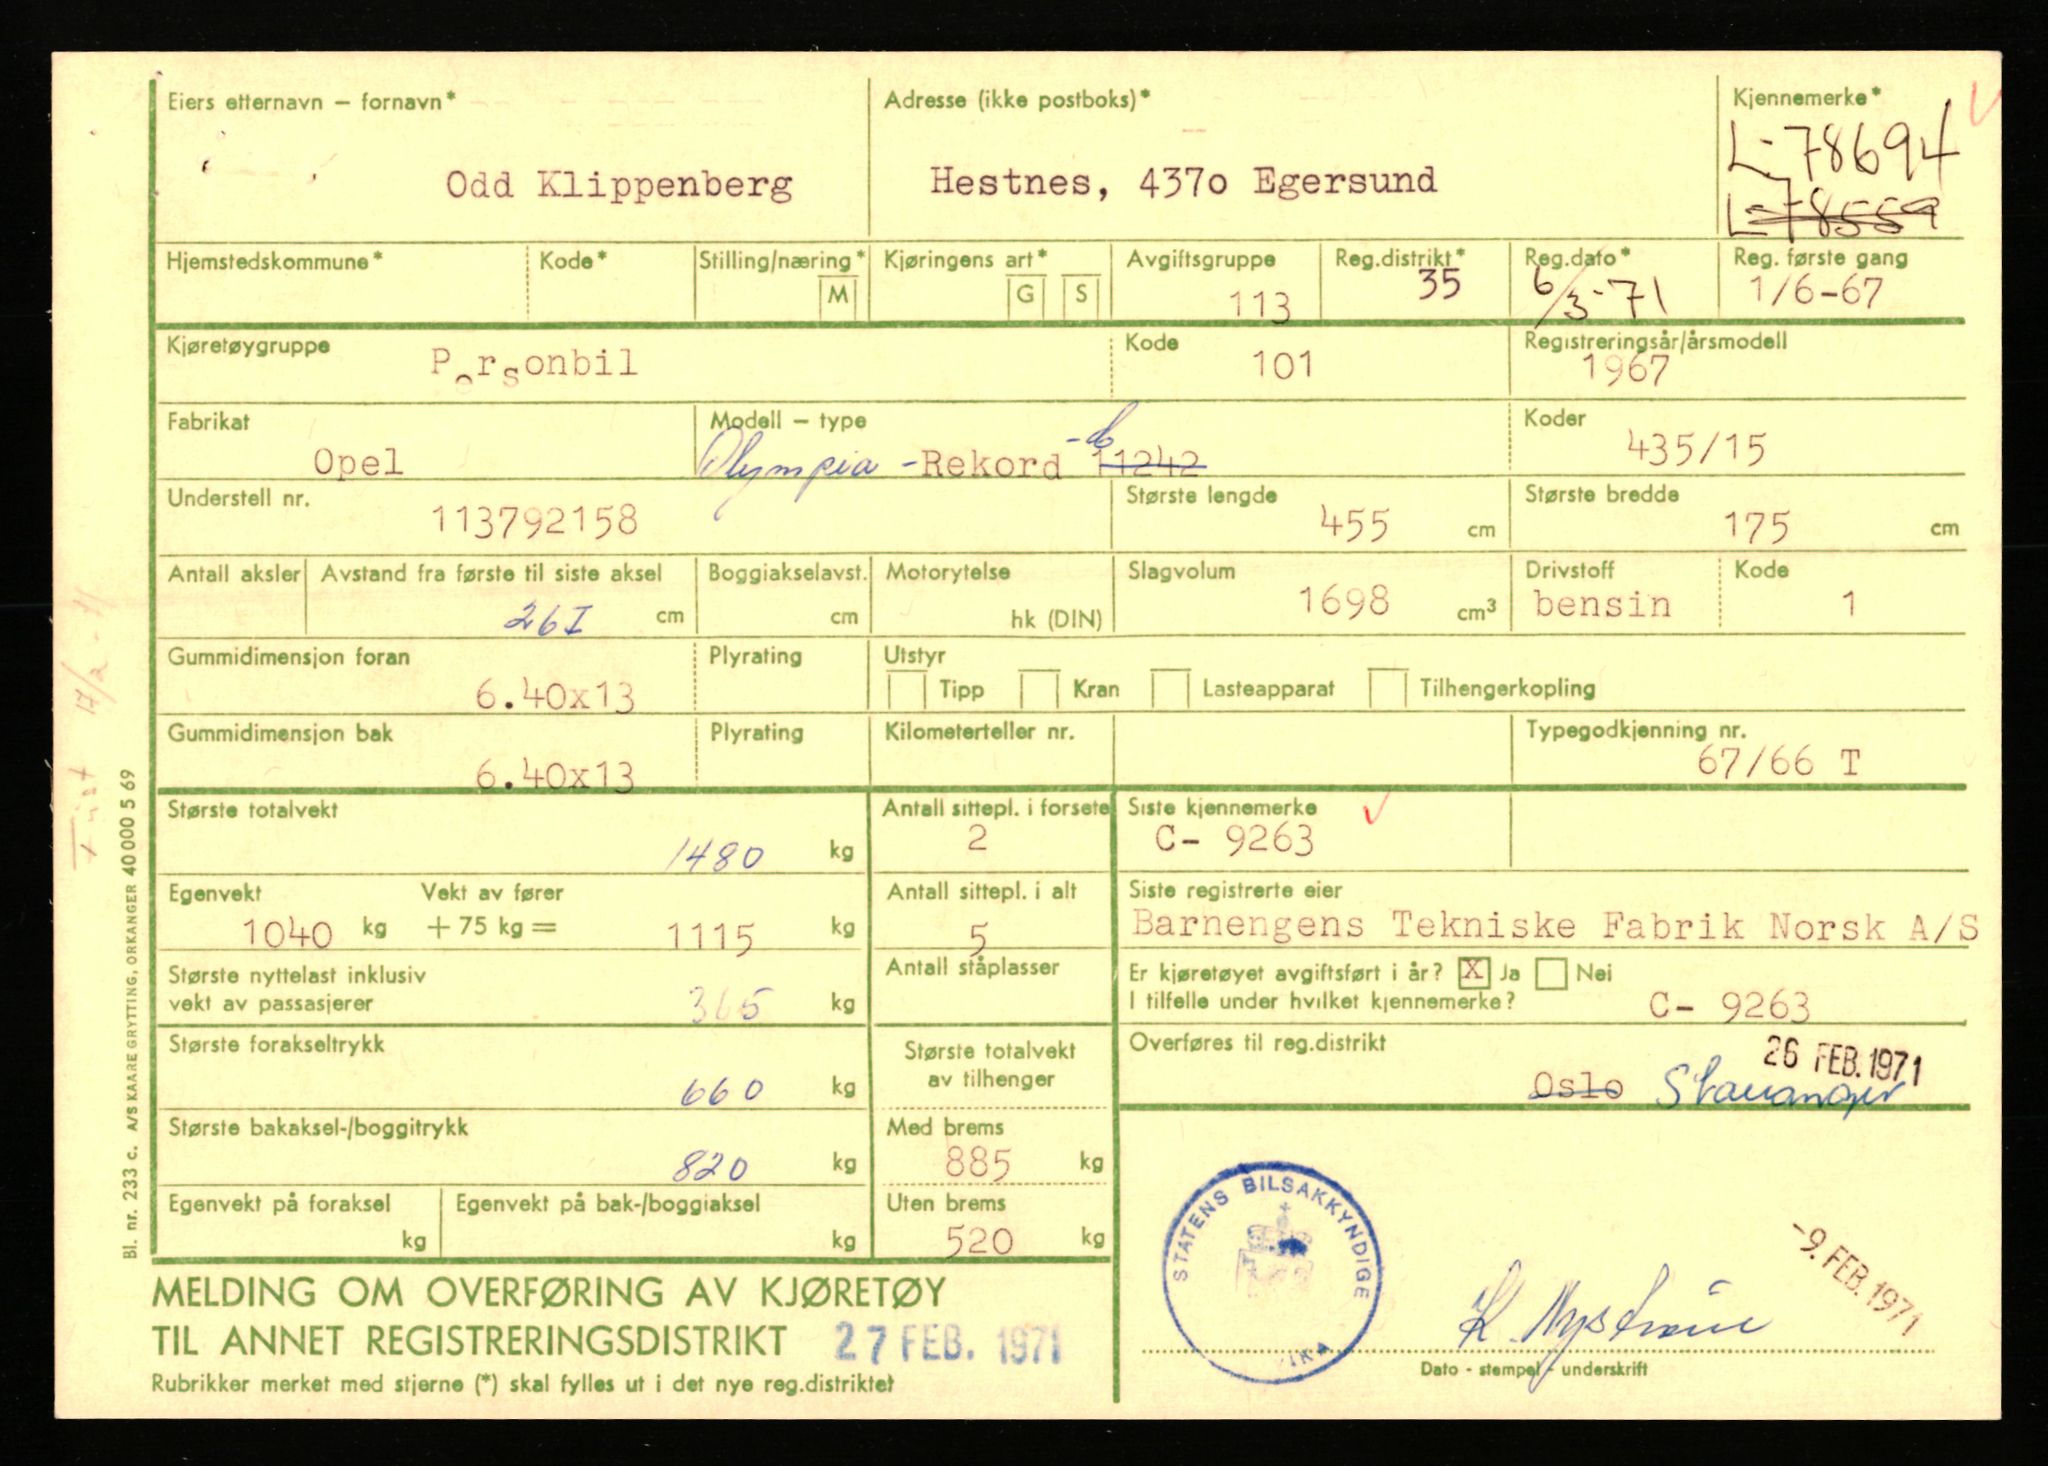 Eiers etternavn – fornavn*
Odd Klippenberg
Adresse (ikke postboks)*
Hestnes, 4370 Egersund
Kjennemerke*
L-78694
L-78559
Hjemstedskommune*
Kode*
Stilling/næring*
M
Kjøringens art*
G S
Avgiftsgruppe
113
Reg.distrikt*
35
Reg.dato*
6/3-71
Reg. første gang
1/6-67
Kjøretøygruppe
Personbil
Kode
101
Registreringsår/årsmodell
1967
Fabrikat
Opel
Modell – type
Olympia -Rekord 11242
Koder
435/15
Understell nr.
113792158
Største lengde
455 cm
Største bredde
175 cm
Antall aksler
Avstand fra første til siste aksel
261 cm
Boggiakselavst.
cm
Motorytelse
hk (DIN)
Slagvolum
1698 cm³
Drivstoff
bensin
Kode
1
Gummidimensjon foran
6.40x13
Plyrating
Utstyr
Tipp Kran Lasteapparat Tilhengerkopling
Gummidimensjon bak
6.40x13
Plyrating
Kilometerteller nr.
Typegodkjenning nr.
67/66 T
Største totalvekt
1480 kg
Antall sittepl. i forsete
2
Siste kjennemerke
C- 9263
Egenvekt Vekt av fører
1040 kg + 75 kg = 1115 kg
Antall sittepl. i alt
5
Siste registrerte eier
Barnengens Tekniske Fabrik Norsk A/S
Største nyttelast inklusiv
vekt av passasjerer
365 kg
Antall ståplasser
Er kjøretøyet avgiftsført i år? X Ja Nei
I tilfelle under hvilket kjennemerke?
C- 9263
Største forakseltrykk
660 kg
Største totalvekt
av tilhenger
Overføres til reg.distrikt
26 FEB. 1971
Oslo Stavanger
Største bakaksel-/boggitrykk
820 kg
Med brems
885 kg
Egenvekt på foraksel
kg
Egenvekt på bak-/boggiaksel
kg
Uten brems
520 kg
STATENS BILSAKKYNDIGE
-9. FEB. 1971
K. Nystrøm
Dato - stempel - underskrift
MELDING OM OVERFØRING AV KJØRETØY
TIL ANNET REGISTRERINGSDISTRIKT
27 FEB. 1971
Rubrikker merket med stjerne (*) skal fylles ut i det nye reg.distriktet
Bl. nr. 233 c. A/S KAARE GRYTTING, ORKANGER 40 000 5 69
17/2-71